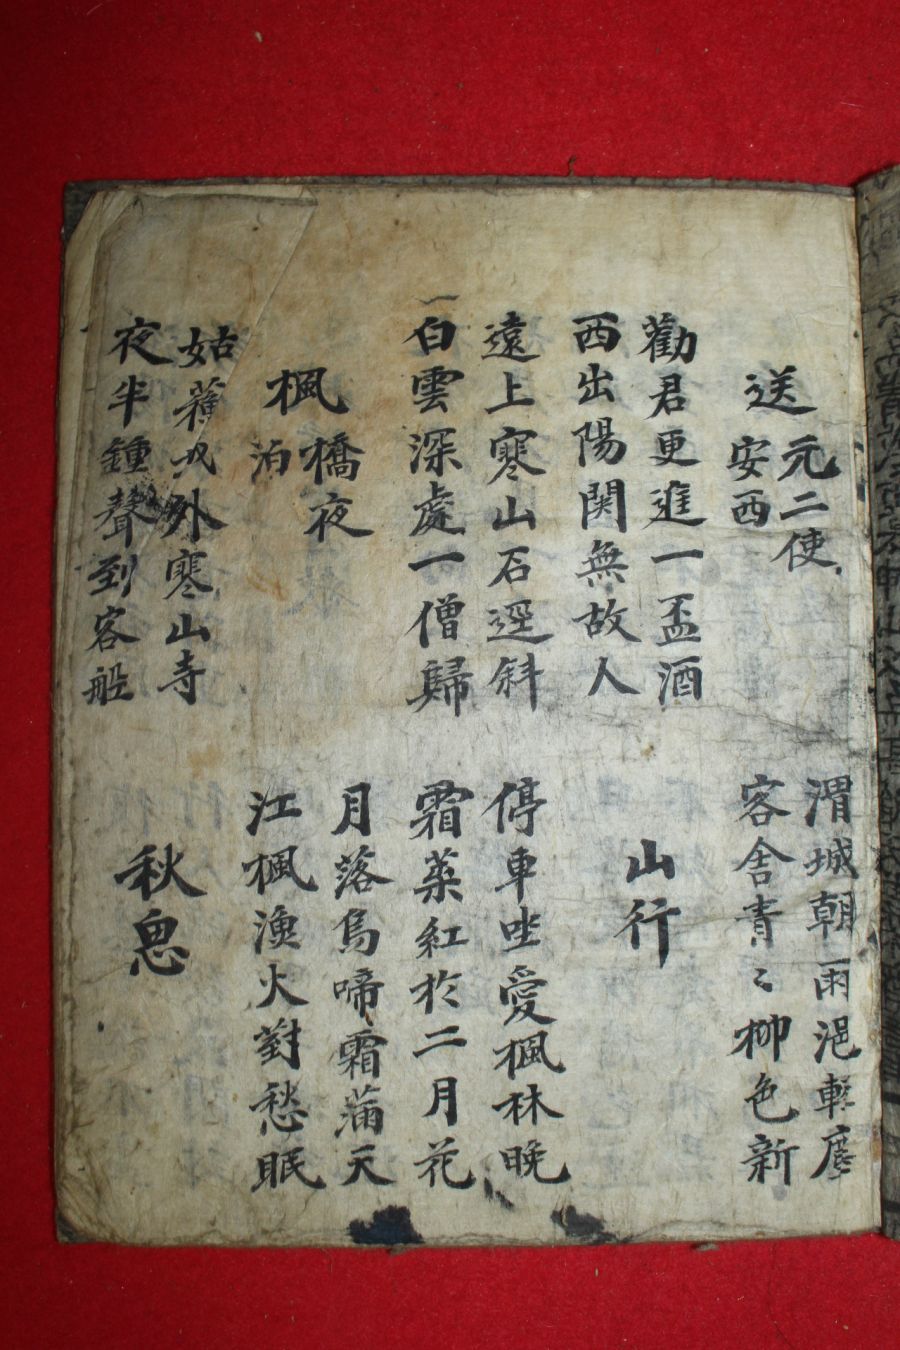 送元二使
安西
渭城朝雨浥輕塵
客舍青〻柳色新
勸君更進一盃酒
西出陽関無故人
山行
遠上寒山石逕斜
白雲深處一僧歸
停車坐愛楓林晚
霜葉紅於二月花
楓橋夜
泊
月落烏啼霜滿天
江楓漁火對愁眠
姑蘇城外寒山寺
夜半鍾聲到客船
秋思